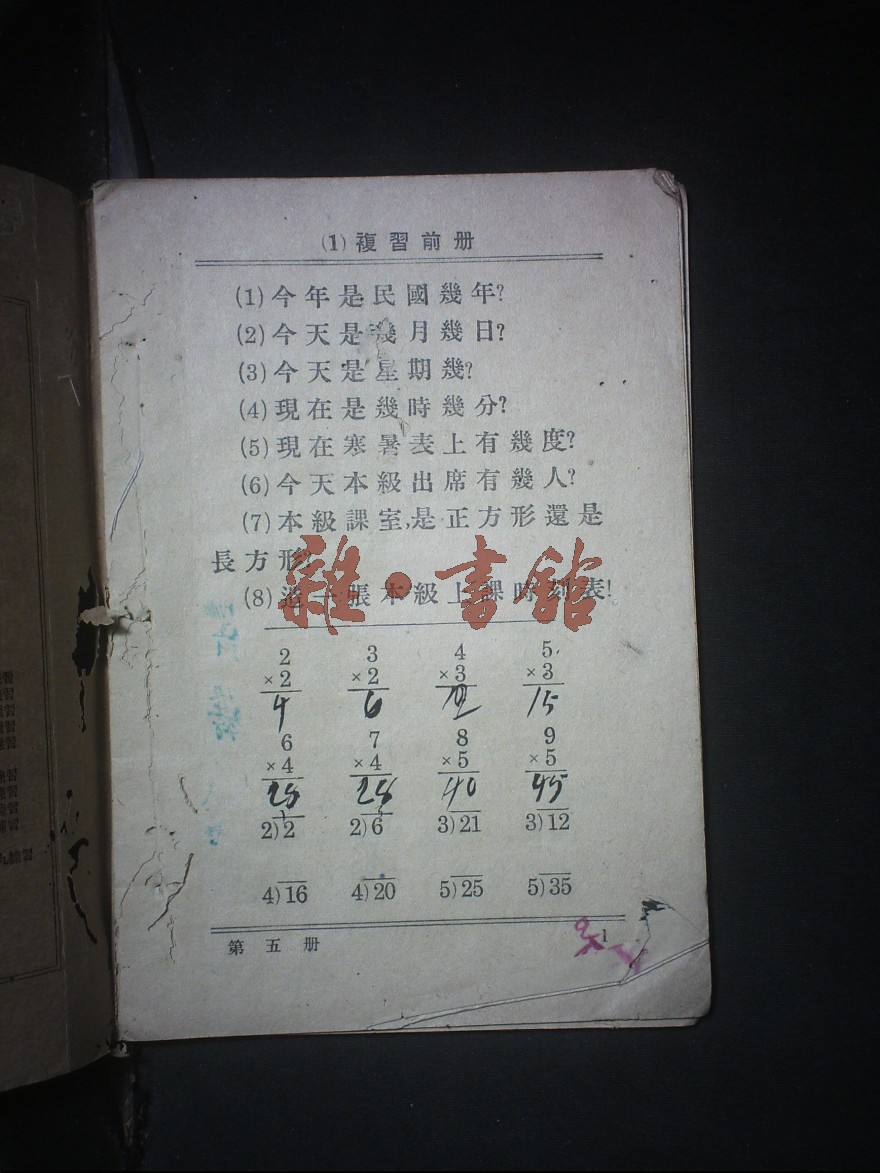 (1) 複習前册
(1) 今年是民國幾年?
(2) 今天是幾月幾日?
(3) 今天是星期幾?
(4) 現在是幾時幾分?
(5) 現在寒暑表上有幾度?
(6) 今天本級出席有幾人?
(7) 本級課室,是正方形還是
長方形?
(8) 造一張本級上課時刻表!
雜·書館
2 3 4 5
×2 ×2 ×3 ×3
4 6 12 15
6 7 8 9
×4 ×4 ×5 ×5
28 28 40 45
1
2)2 2)6 3)21 3)12
4)16 4)20 5)25 5)35
第五册 1